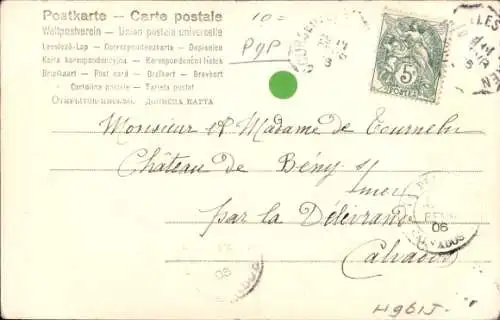 Postkarte – Carte postale
Weltpostverein – Union postale universelle
Levelező-Lap – Correspondenzkarte – Dopisnice
Karta korespondencyjna – Korespondenční lístek
Brefkaart – Post card – Brefkort – Brevkort
Cartolina postale – Tarjeta postal
Открытое письмо. – Дописна карта
10=
PYP
5
POSTES
Monsieur et Madame de Tournebu
Château de Bény s/
mer
par la Délivrande
Calvados
06
CALVADOS
06
H961J